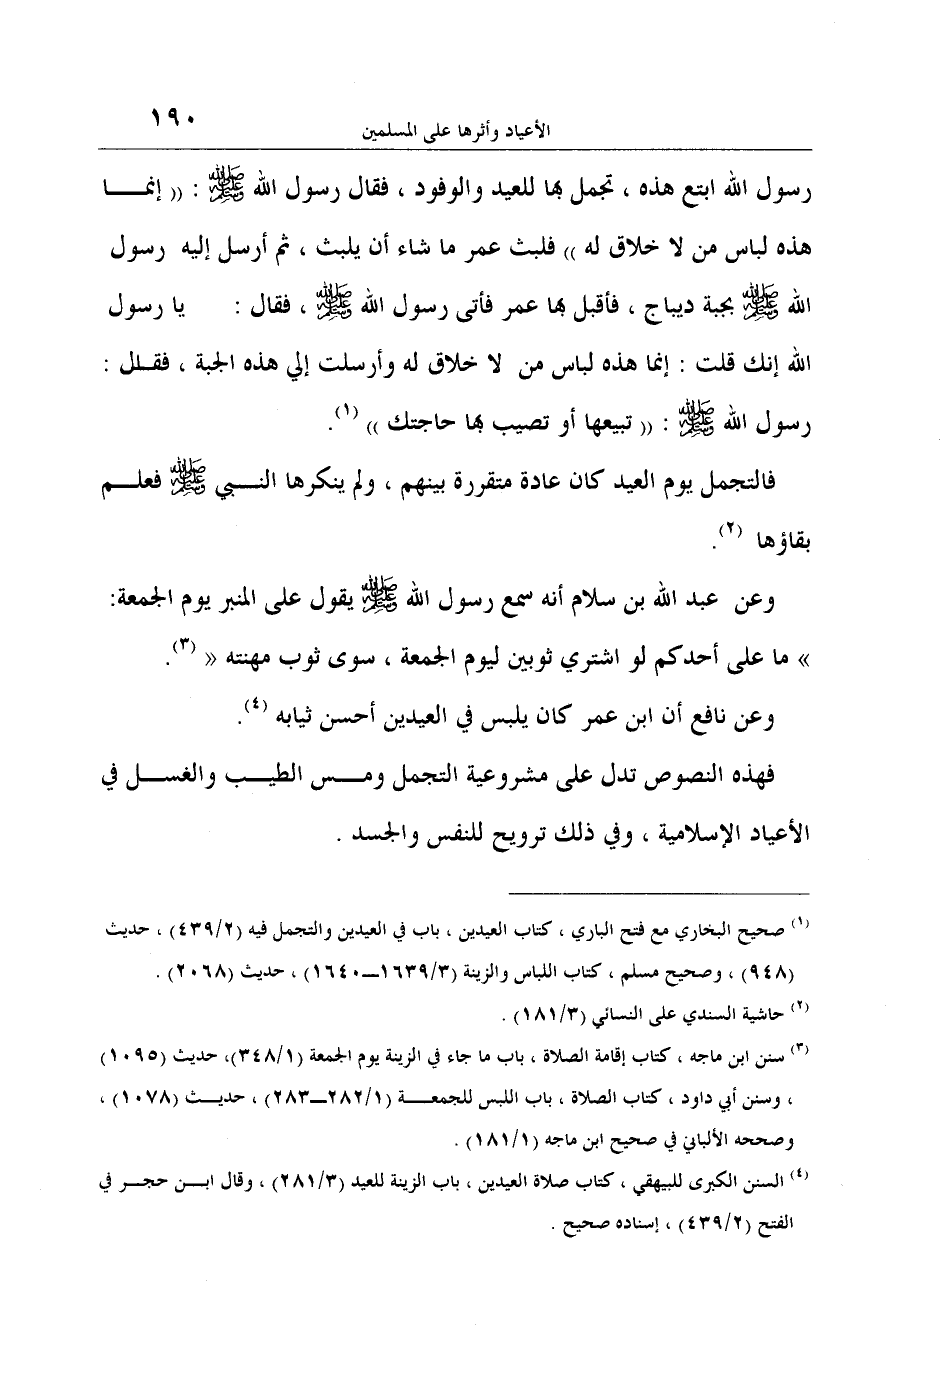 ١٩٠
الأعياد وأثرها على المسلمين
رسول الله ابتع هذه ، تجمل بها للعيد والوفود ، فقال رسول الله ﷺ : (( إنمـــا
هذه لباس من لا خلاق له )) فلبث عمر ما شاء أن يلبث ، ثم أرسل إليه رسول
الله ﷺ بجبة ديباج ، فأقبل بها عمر فأتى رسول الله ﷺ ، فقال : يا رسول
الله إنك قلت : إنما هذه لباس من لا خلاق له وأرسلت إلي هذه الجبة ، فقـلل :
رسول الله ﷺ : (( تبيعها أو تصيب بها حاجتك )) (١).
فالتجمل يوم العيد كان عادة متقررة بينهم ، ولم ينكرها النــبي ﷺ فعلــم
بقاؤها (٢).
وعن عبد الله بن سلام أنه سمع رسول الله ﷺ يقول على المنبر يوم الجمعة:
» ما على أحدكم لو اشتري ثوبين ليوم الجمعة ، سوى ثوب مهنته « (٣).
وعن نافع أن ابن عمر كان يلبس في العيدين أحسن ثيابه (٤).
فهذه النصوص تدل على مشروعية التجمل ومــس الطيــب والغســل في
الأعياد الإسلامية ، وفي ذلك ترويح للنفس والجسد .
(١) صحيح البخاري مع فتح الباري ، كتاب العيدين ، باب في العيدين والتجمل فيه (٤٣٩/٢) ، حديث
(٩٤٨) ، وصحيح مسلم ، كتاب اللباس والزينة (١٦٣٩/٣ــ١٦٤٠) ، حديث (٢٠٦٨) .
(٢) حاشية السندي على النسائي (١٨١/٣) .
(٣) سنن ابن ماجه ، كتاب إقامة الصلاة ، باب ما جاء في الزينة يوم الجمعة (٣٤٨/١)، حديث (١٠٩٥)
، وسنن أبي داود ، كتاب الصلاة ، باب اللبس للجمعــة (٢٨٢/١ــ٢٨٣) ، حديــث (١٠٧٨) ،
وصححه الألباني في صحيح ابن ماجه (١٨١/١) .
(٤) السنن الكبرى للبيهقي ، كتاب صلاة العيدين ، باب الزينة للعيد (٢٨١/٣) ، وقال ابــن حجــر في
الفتح (٤٣٩/٢) ، إسناده صحيح .